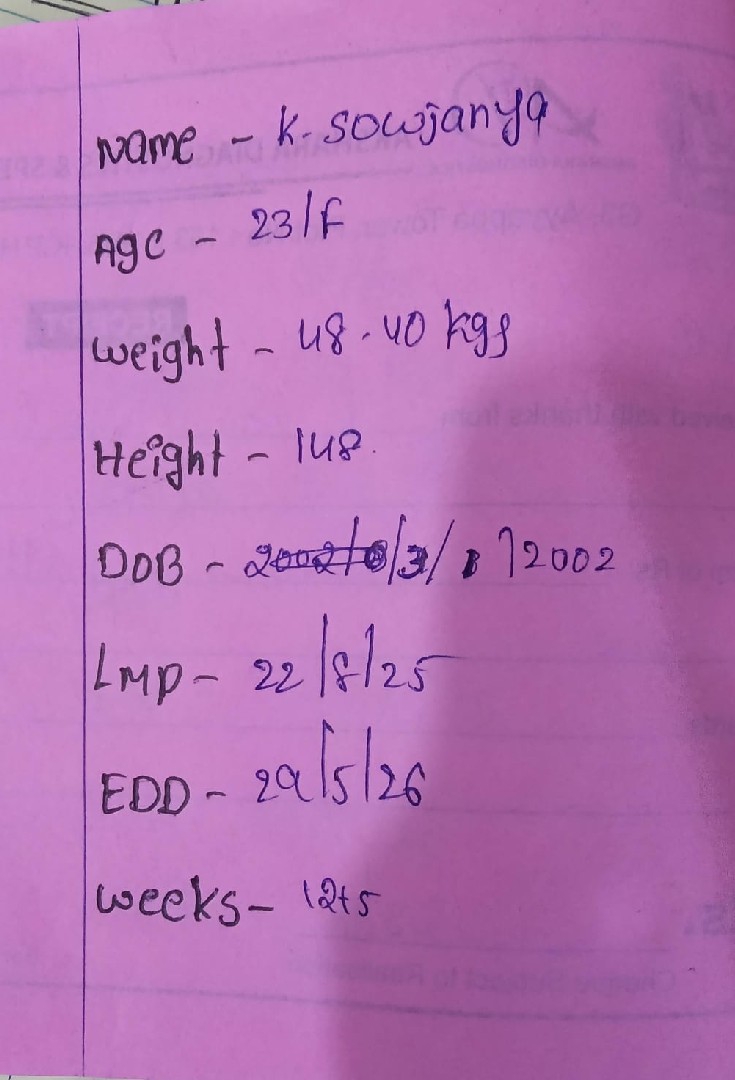 Name - K. Sowjanya
Age - 23/F
Weight - 48.40 kgs
Height - 148.
DOB - 3/ 1 /2002
LMP - 22/8/25
EDD - 29/5/26
Weeks - 12+5